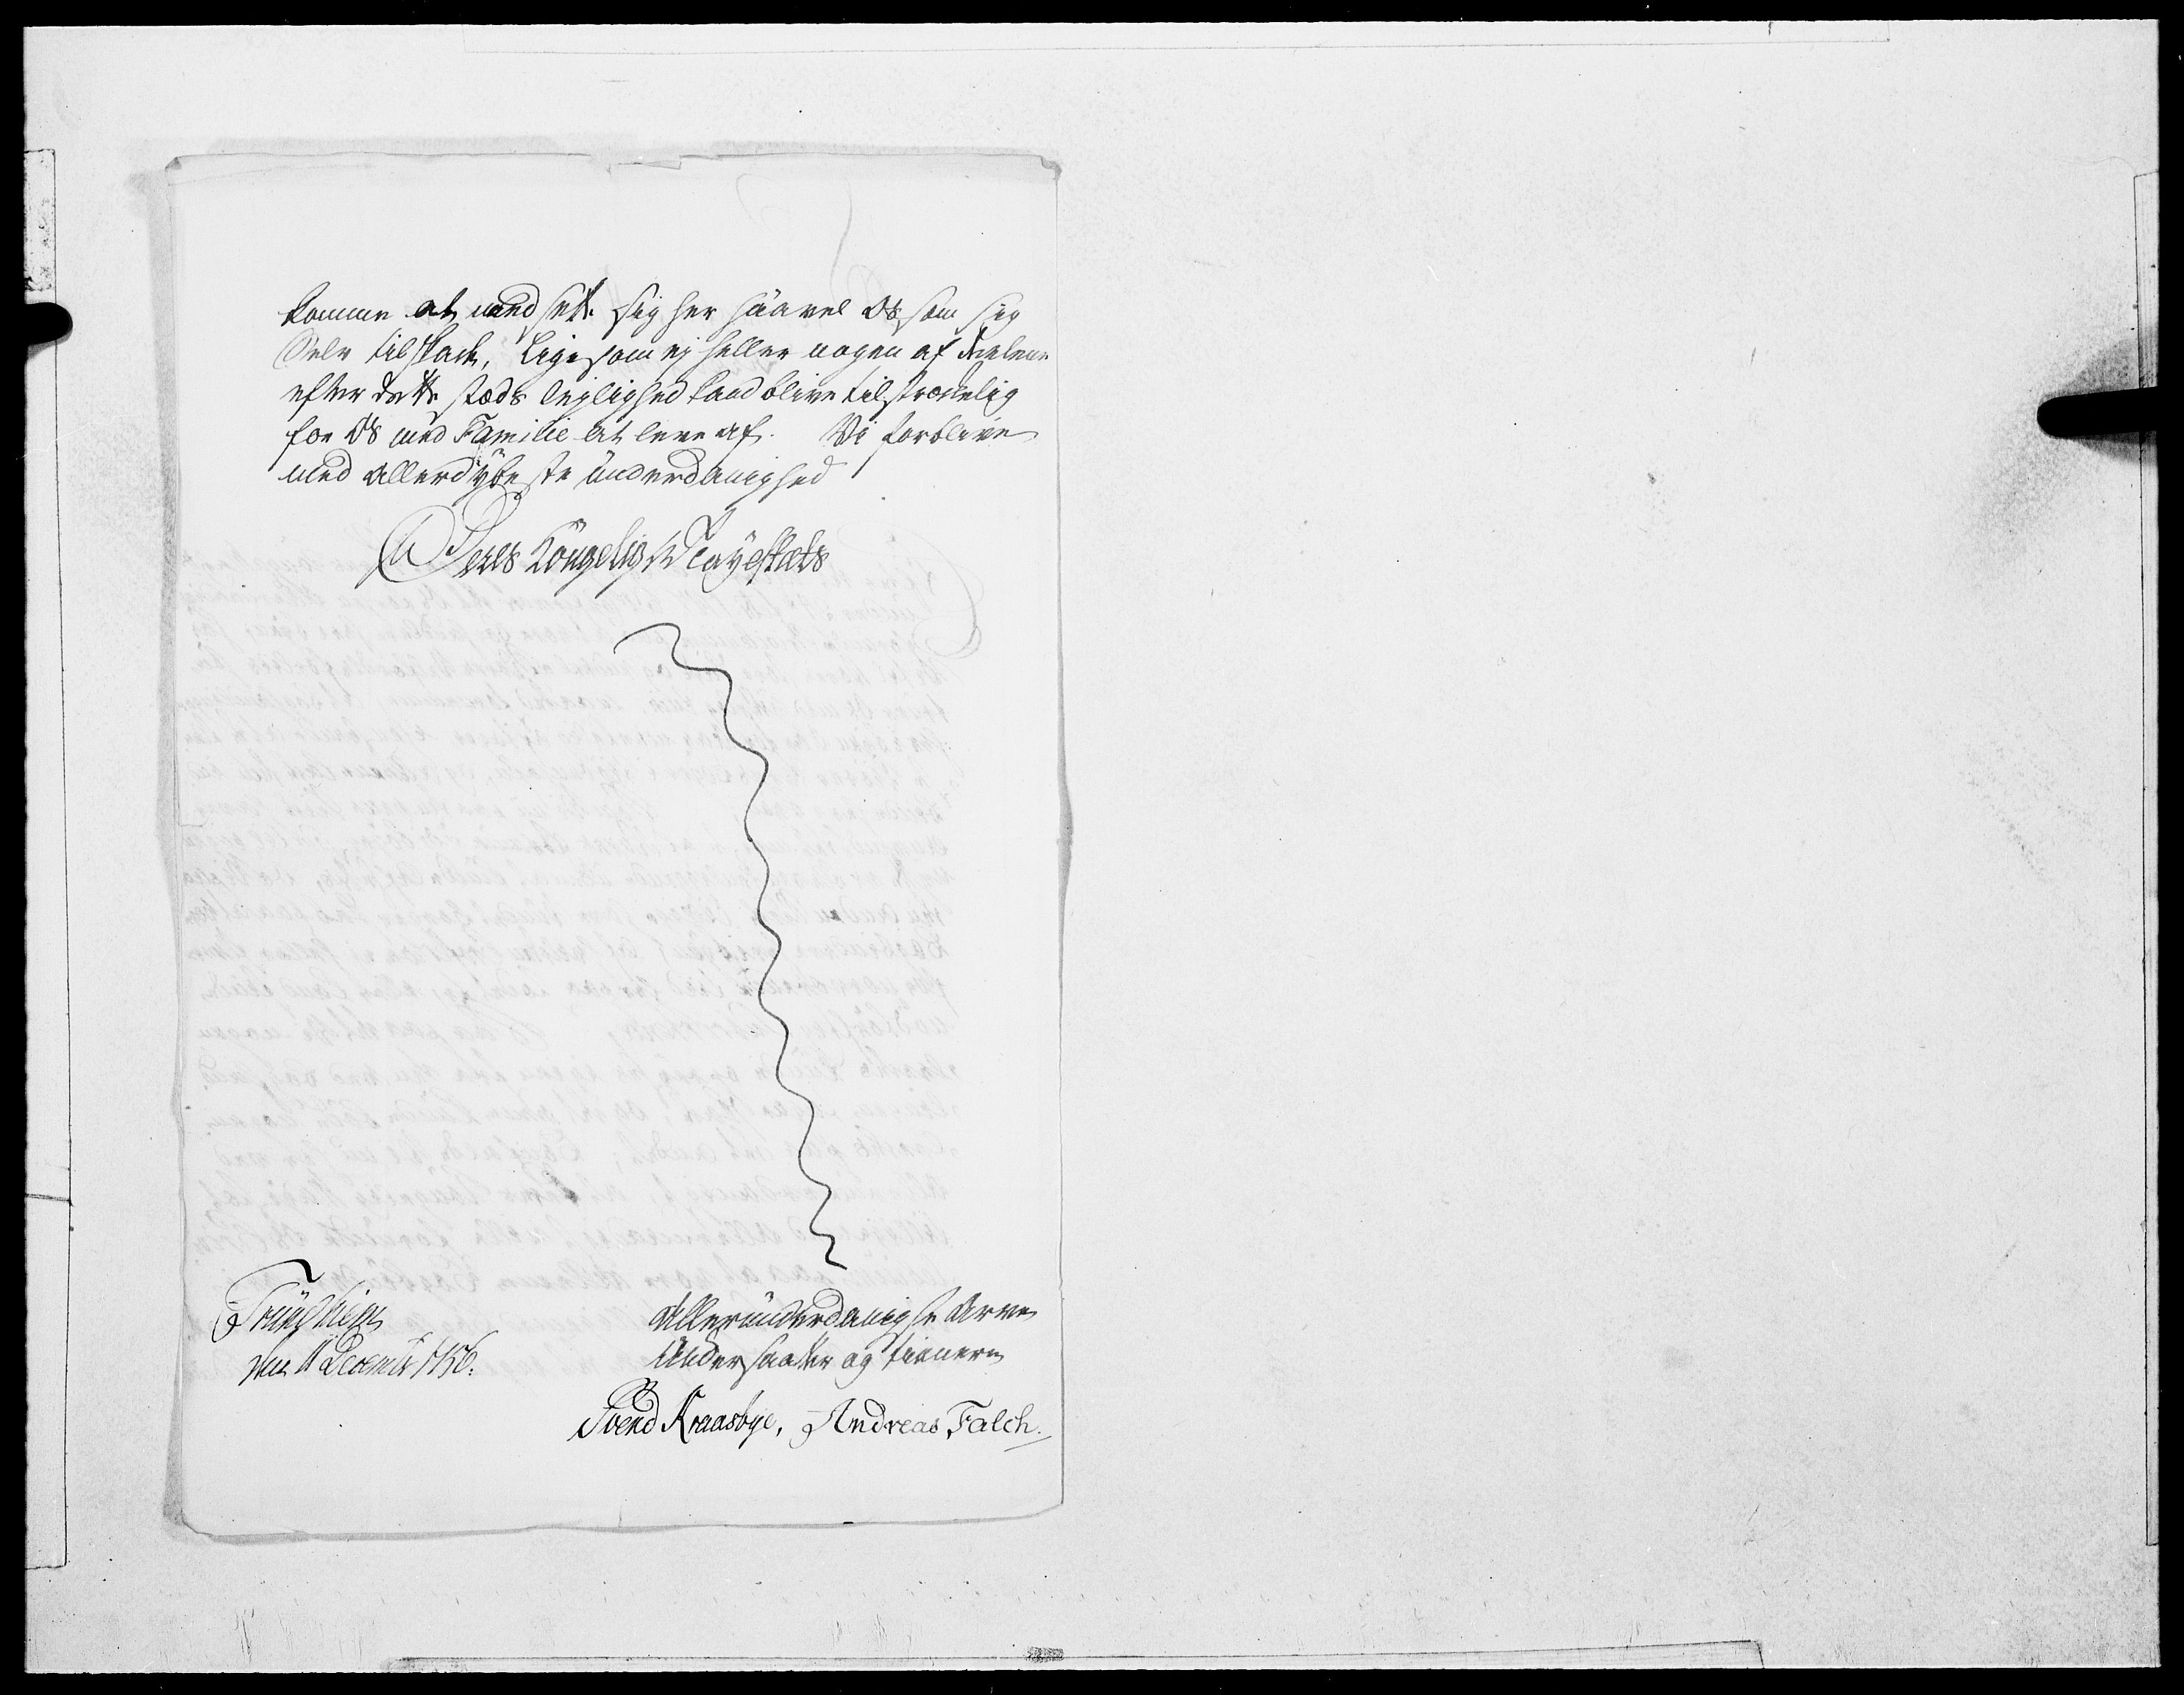 komme at nedsette sig her saavel os som sig
Selv til skade, Ligesom ej heller nogen af Deelene
efter dette stæds lejlighed kand blive tilstrækelig
for os med Familie at leve af. Vi forblive
med allerdÿbeste ünderdanighed
Deres Kongelig Mayestæts
Tründhiem
den 11 Decembr 1756.
Alleründerdanigste Arve
Undersaatter og tienere
Svend Kraasbye, Andreas Falch.